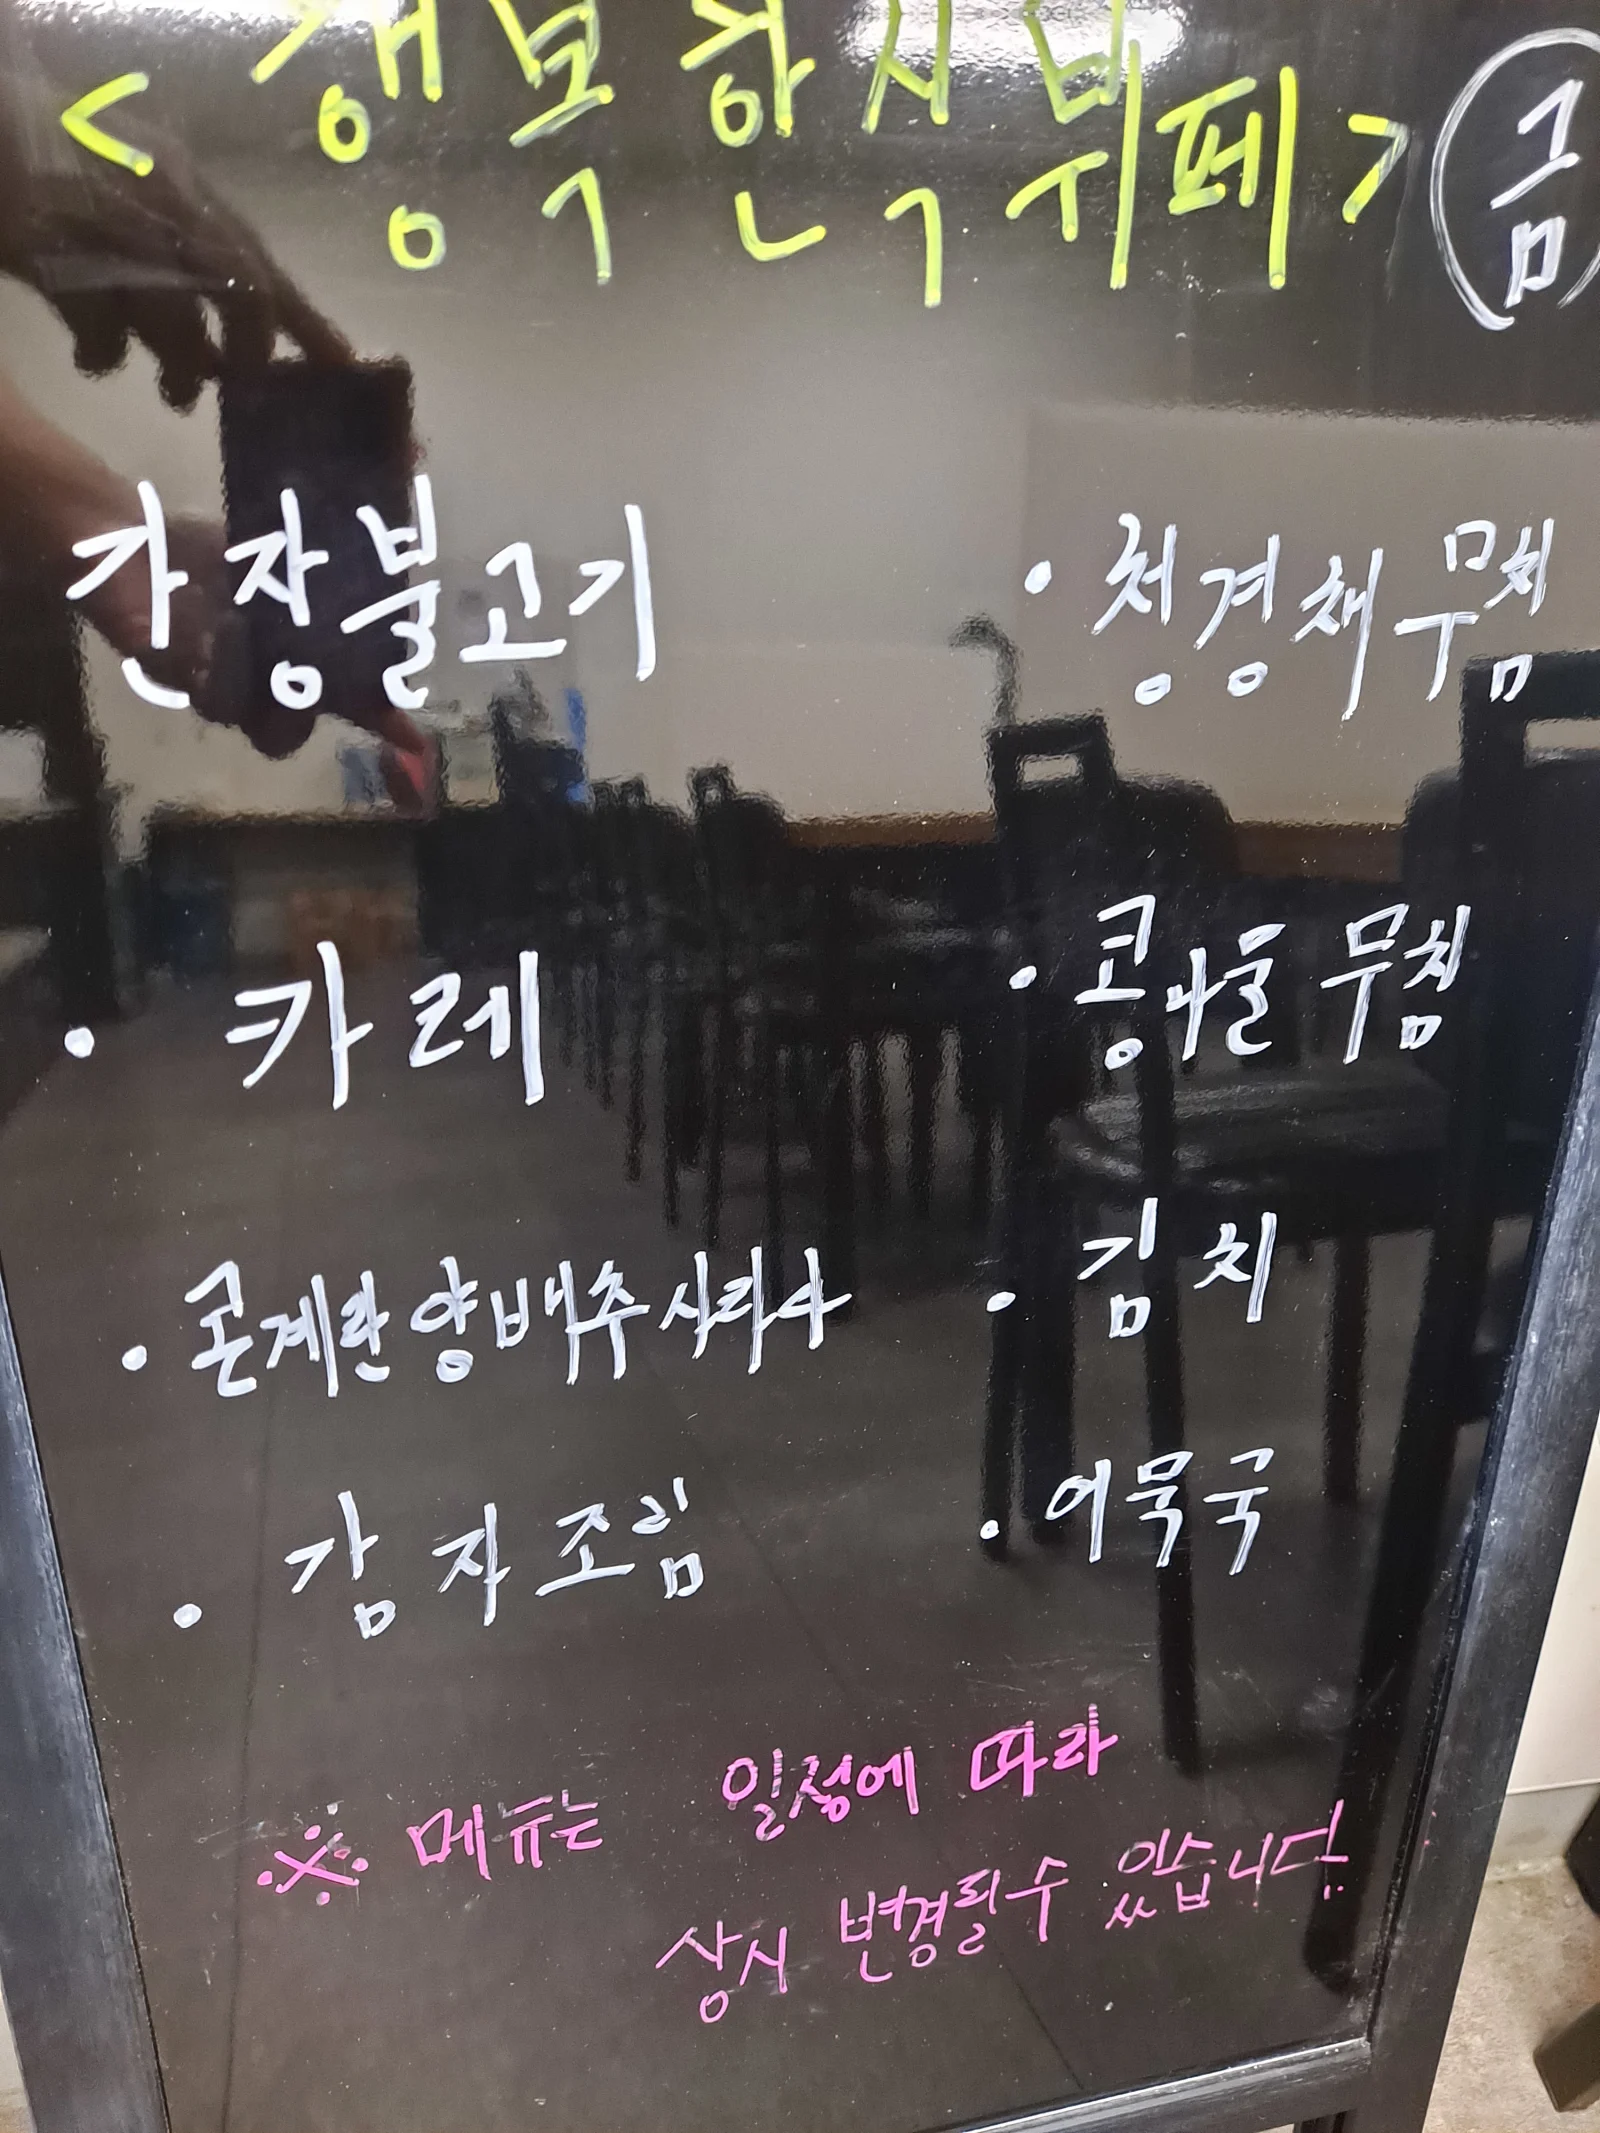 <행복한식뷔페> 금
간장불고기
· 카레
· 콘계란양배추사라다
· 감자조림
· 청경채무침
· 콩나물무침
· 김치
· 어묵국
※ 메뉴는 일정에 따라
상시 변경될수 있습니다.